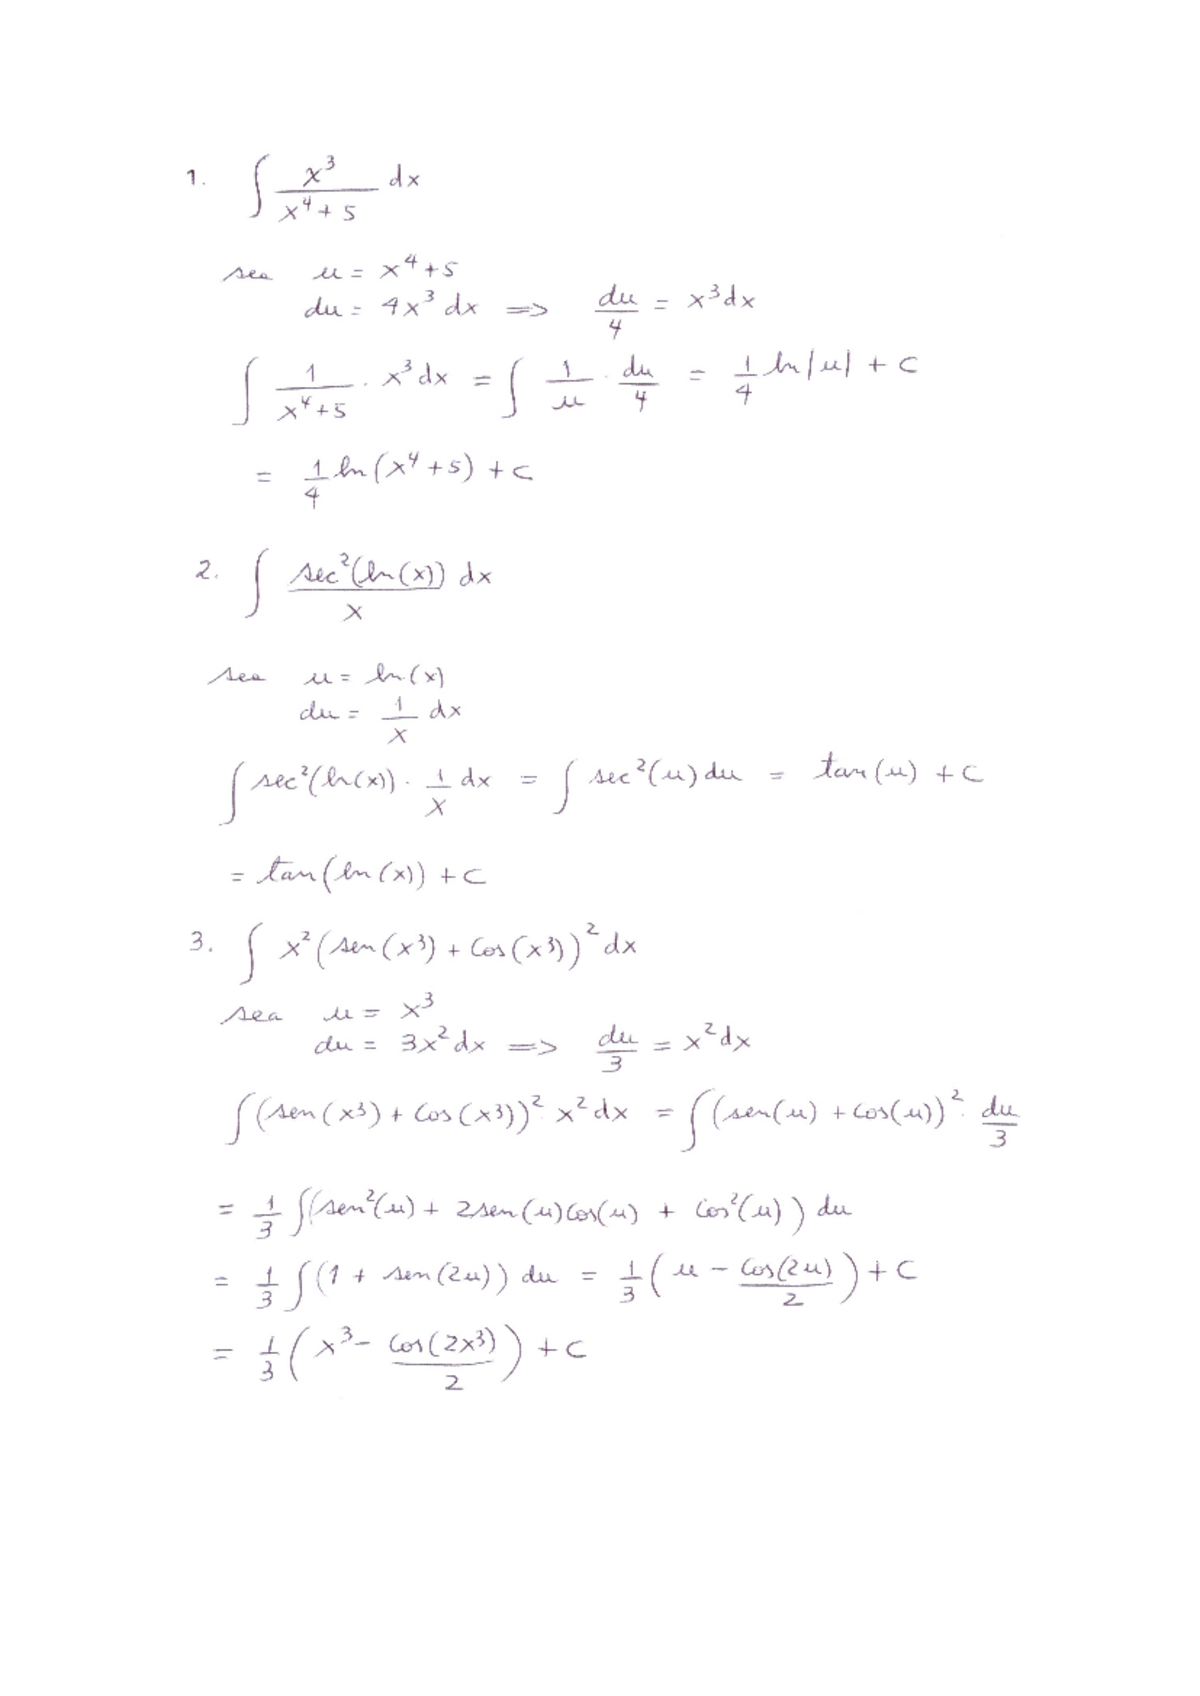 1. ∫ x³/(x⁴+5) dx
sea u = x⁴+5
du = 4x³ dx => du/4 = x³dx
∫ 1/(x⁴+5) · x³dx = ∫ 1/u · du/4 = 1/4 ln|u| + C
= 1/4 ln(x⁴+5) + C
2. ∫ sec²(ln(x))/x dx
sea u = ln(x)
du = 1/x dx
∫ sec²(ln(x)) · 1/x dx = ∫ sec²(u) du = tan(u) + C
= tan(ln(x)) + C
3. ∫ x²(sen(x³) + Cos(x³))² dx
sea u = x³
du = 3x²dx => du/3 = x²dx
∫(sen(x³) + Cos(x³))² x²dx = ∫(sen(u) + Cos(u))² · du/3
= 1/3 ∫(sen²(u) + 2sen(u)Cos(u) + Cos²(u)) du
= 1/3 ∫(1 + sen(2u)) du = 1/3 (u - Cos(2u)/2) + C
= 1/3 (x³ - Cos(2x³)/2) + C